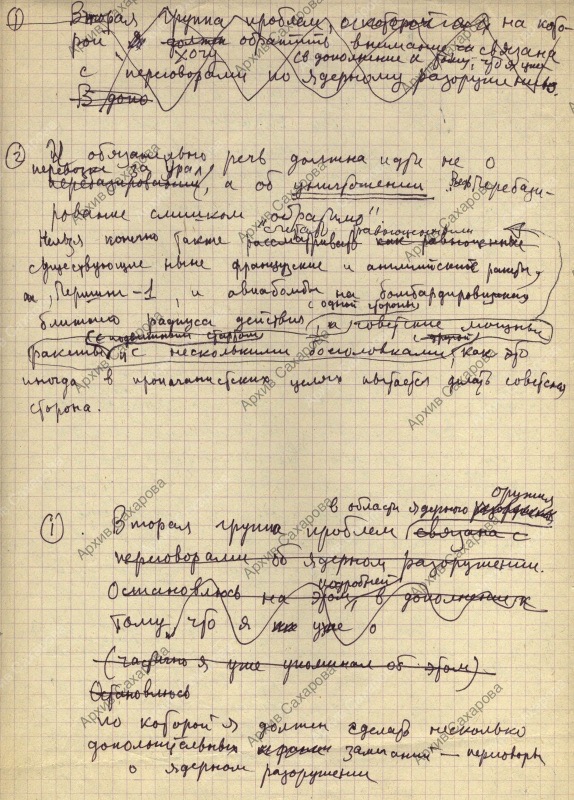 ① Вторая группа проблем, на кото-
рой я должен обратить внимание связана
хочу (в дополнение к тому, что я уже
с переговорами по ядерному разоружению.
В допо
② И обязательно речь должна идти не о
перевозке за Урал
перебазировании, а об уничтожении. Перебази-
рование слишком "обратимо".
считать равноценными
Нельзя конечно также рассматривать как равноценные
существующие ныне французские и английские ракеты,
"Першинг-1", и авиабомбы на бомбардировщиках
с одной стороны
ближнего радиуса действия, а советские мощные
(с подвижным стартом) с другой
ракеты и с несколькими боеголовками, как это
иногда в пропагандистских целях пытается делать советская
сторона.
оружия
в области ядерного разоружения
① Вторая группа проблем связана с
переговорами об ядерном разоружении.
подробней
Остановлюсь на этом, в дополнение к
тому, что я уже о
(частично я уже упоминал об этом)
Остановлюсь
по которой я должен сделать несколько
дополнительных замечаний — переговоры
о ядерном разоружении
Архив Сахарова